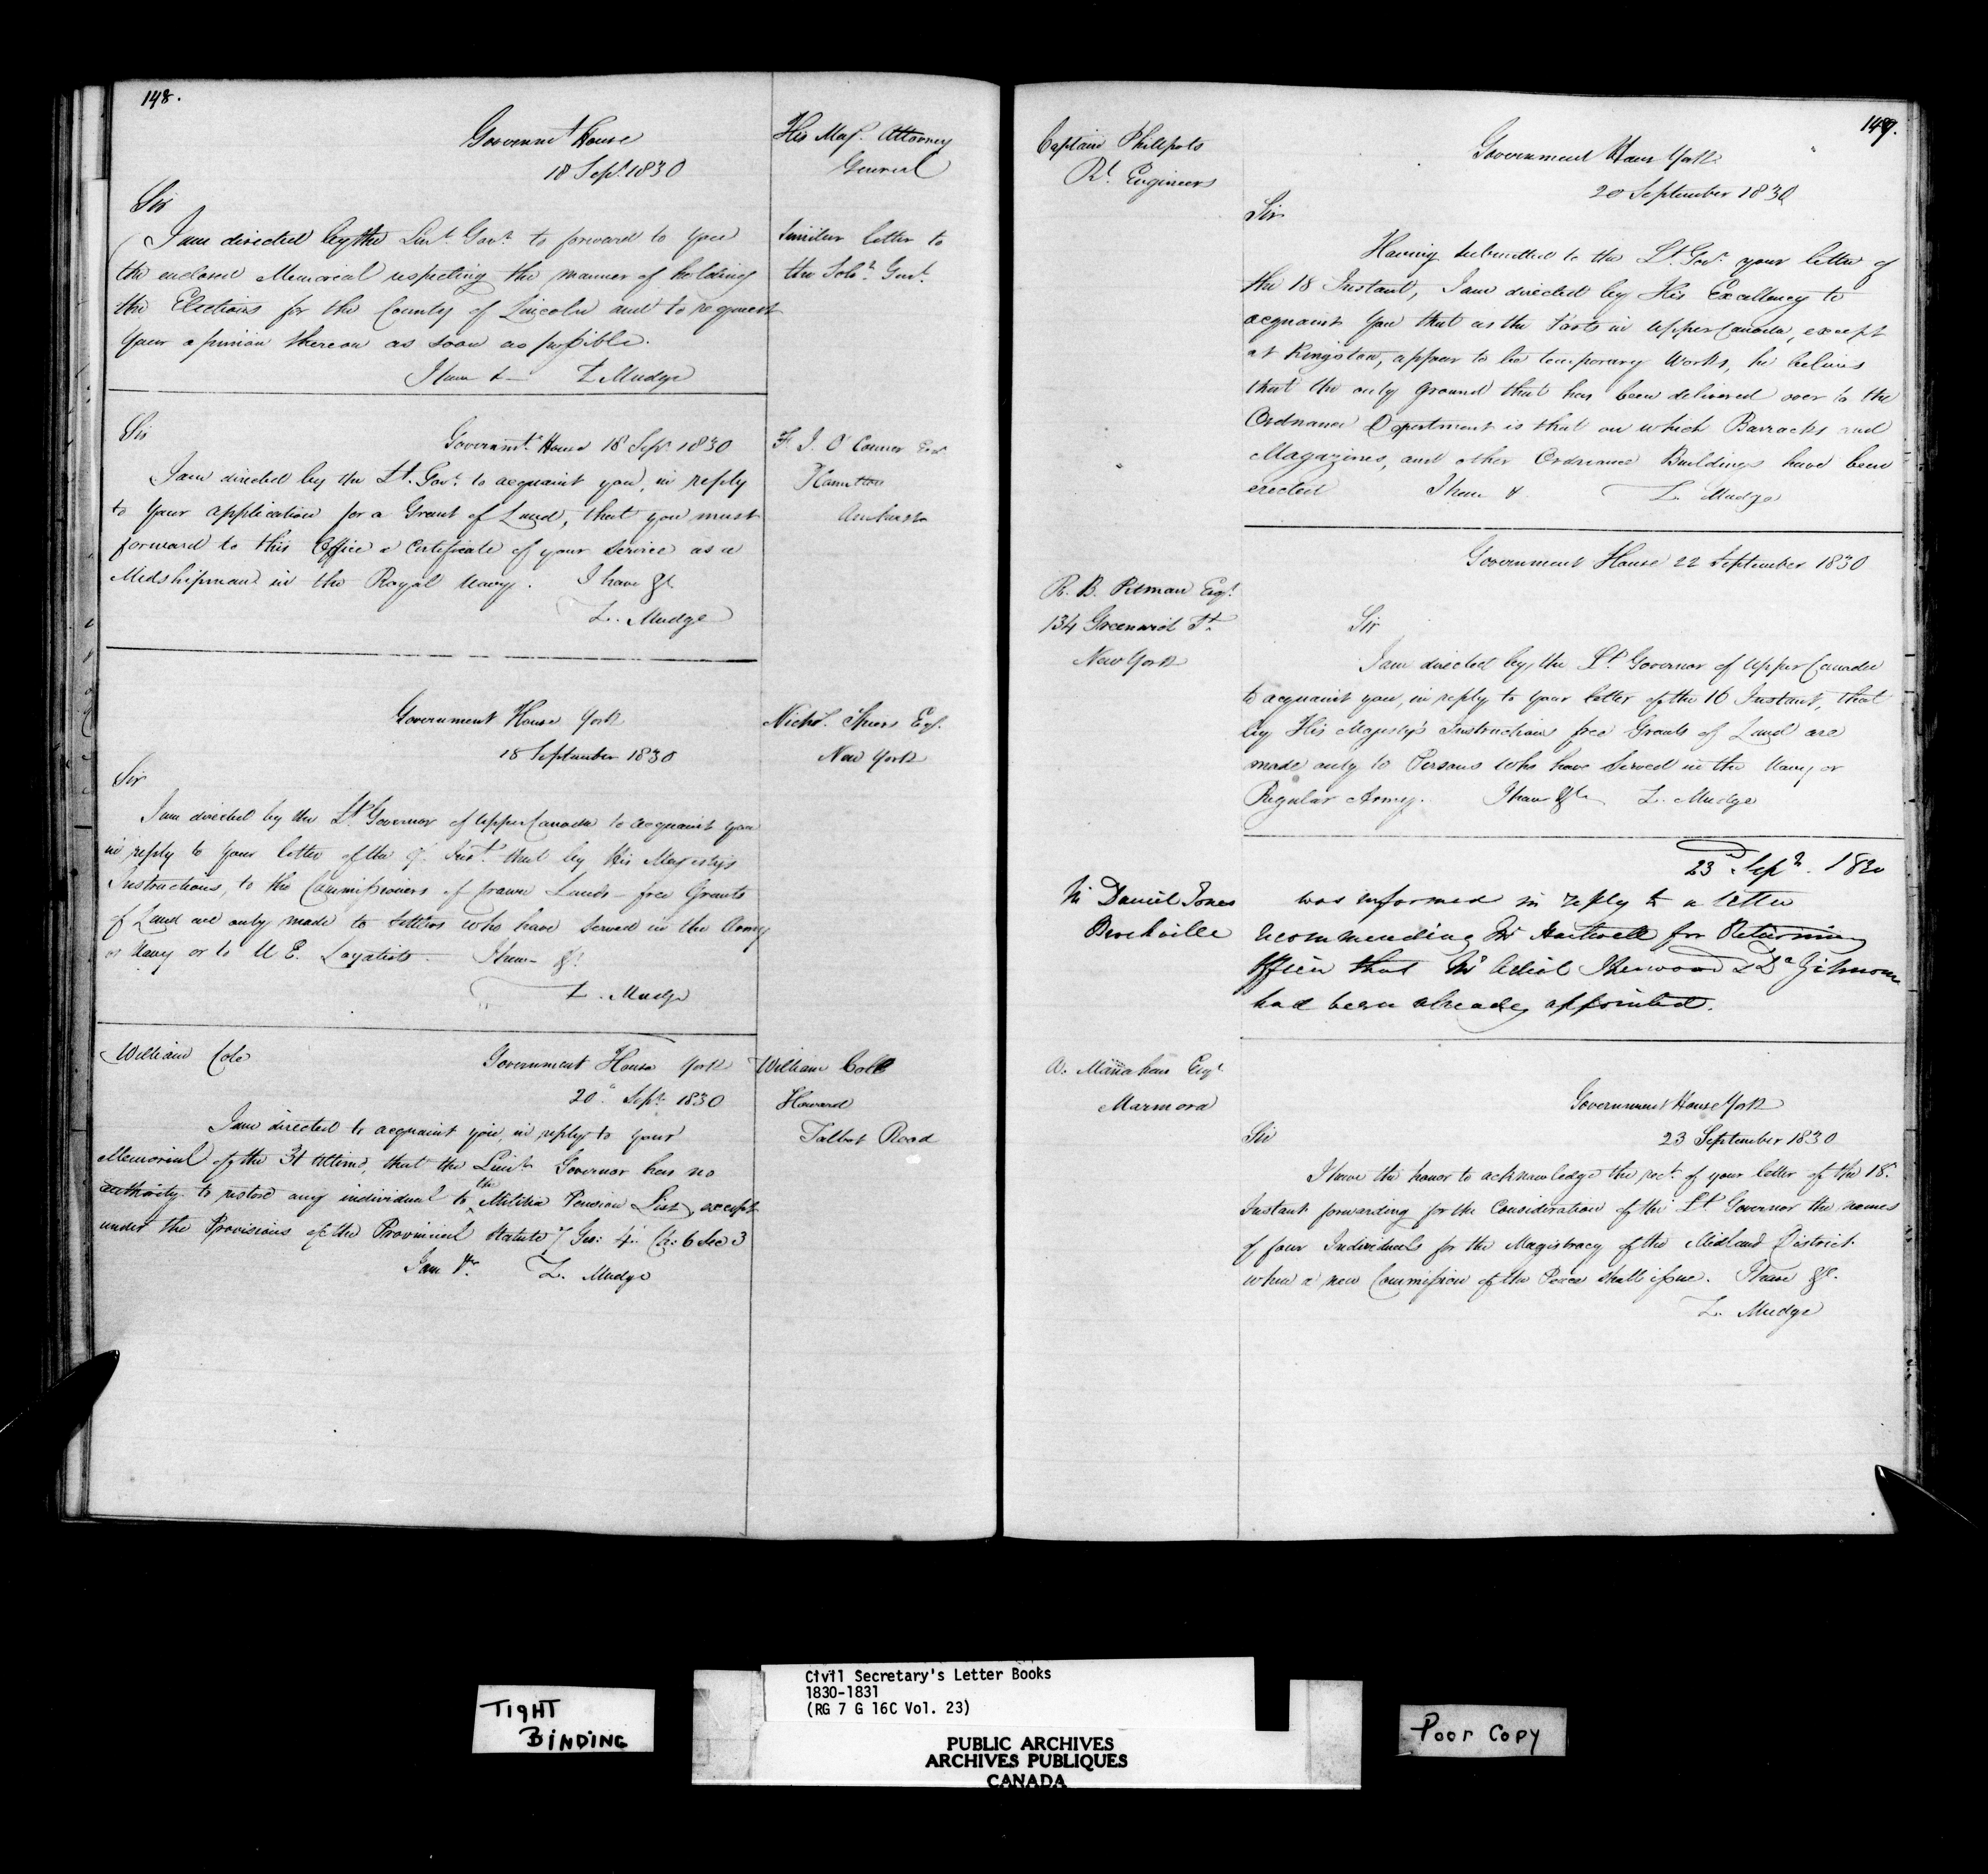 148.
Governmt House
18 Sept. 1830
His Maj. Attorney
General
Sir
I am directed by the Lieut. Govr. to forward to you
the enclosed Memorial respecting the manner of holding
the Elections for the County of Lincoln and to request
your opinion thereon as soon as possible.
I have &- Z Mudge
Similar letter to
the Solr. Genl.
Sir
Governmt. House 18 Sept. 1830
I am directed by the Lt. Govr. to acquaint you, in reply
to your application for a Grant of Land, that you must
forward to this Office a Certificate of your Service as a
Midshipman in the Royal Navy. I have &c
Z. Mudge
F. J. O'Connor Esqr
Hamilton
Government House York
18 September 1830
Nichs. Esqr.
New York
Sir
I am directed by the Lt. Governor of Upper Canada to acquaint you
in reply to your letter of the Inst. that by His Majesty's
Instructions, to the Commissioners of Crown Lands - free Grants
of Land are only made to Settlers who have served in the Army
or Navy or to U E. Loyalists. I have &c
Z. Mudge
William Cole
Government House York
20 Sept. 1830
William Cole
Howard
Talbot Road
I am directed to acquaint you, in reply to your
Memorial of the 31 Ultimo, that the Lieut. Governor has no
authority to restore any individual to the Militia Pension List, except
under the Provisions of the Provincial Statute 7 Geo: 4. Ch: 6 Sec 3
I am &c. Z. Mudge
149.
Captain Philpots
Rl. Engineers
Government House York
20 September 1830
Sir
Having submitted to the Lt. Govr. your letter of
the 18 Instant, I am directed by His Excellency to
acquaint you that as the Forts in Upper Canada, except
at Kingston, appear to be temporary Works, he believes
that the only ground that has been delivered over to the
Ordnance Department is that on which Barracks and
Magazines, and other Ordnance Buildings have been
erected I have &. Z. Mudge
Government House 22 September 1830
R. B. Esqr.
134 Greenwich St.
New York
Sir
I am directed by the Lt. Governor of Upper Canada
to acquaint you, in reply to your letter of the 16 Instant, that
by His Majesty's Instructions free Grants of Land are
made only to Persons who have served in the Navy or
Regular Army. I have &c Z. Mudge
23d Sepr. 1830
Mr Daniel Jones
Brockville
was informed in reply to a letter
recommending Mr Hartwell for Returning
Officer that Mr Adiel Sherwood & Dr
had been already appointed.
A. Manahan Esqr
Marmora
Government House York
Sir
23 September 1830
I have the honor to acknowledge the rect. of your letter of the 18.
Instant forwarding for the Consideration of the Lt. Governor the names
of four Individuals for the Magistracy of the Midland District
when a new Commission of the Peace shall issue. I have &c.
Z. Mudge
TIGHT
BINDING
Civil Secretary's Letter Books
1830-1831
(RG 7 G 16C Vol. 23)
PUBLIC ARCHIVES
ARCHIVES PUBLIQUES
CANADA
Poor Copy